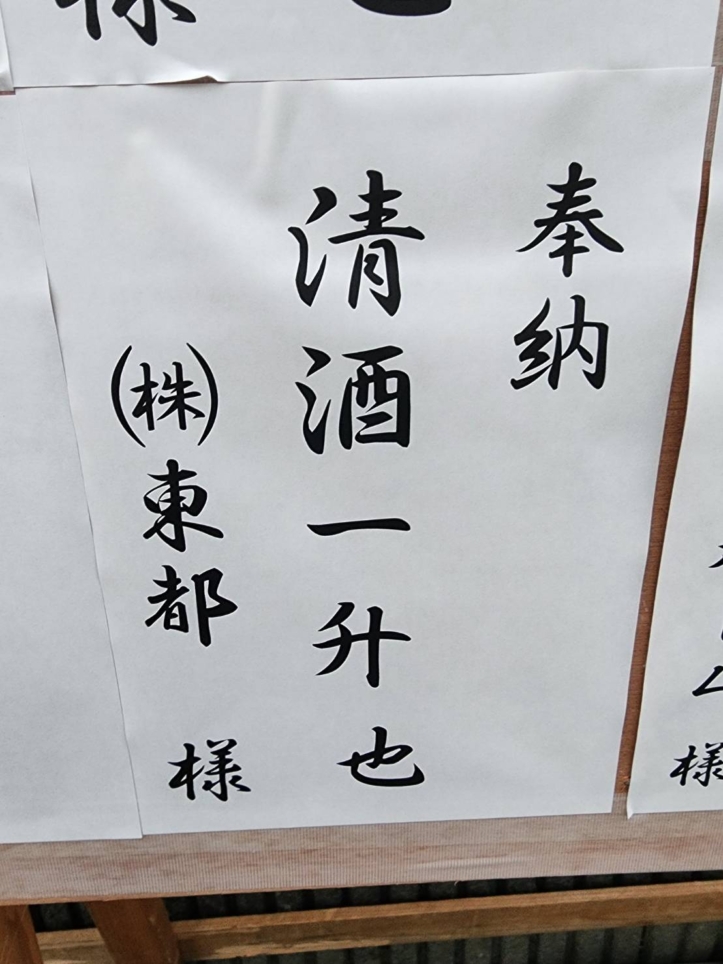 様
也
奉納
清酒一升也
㈱東都 様
様